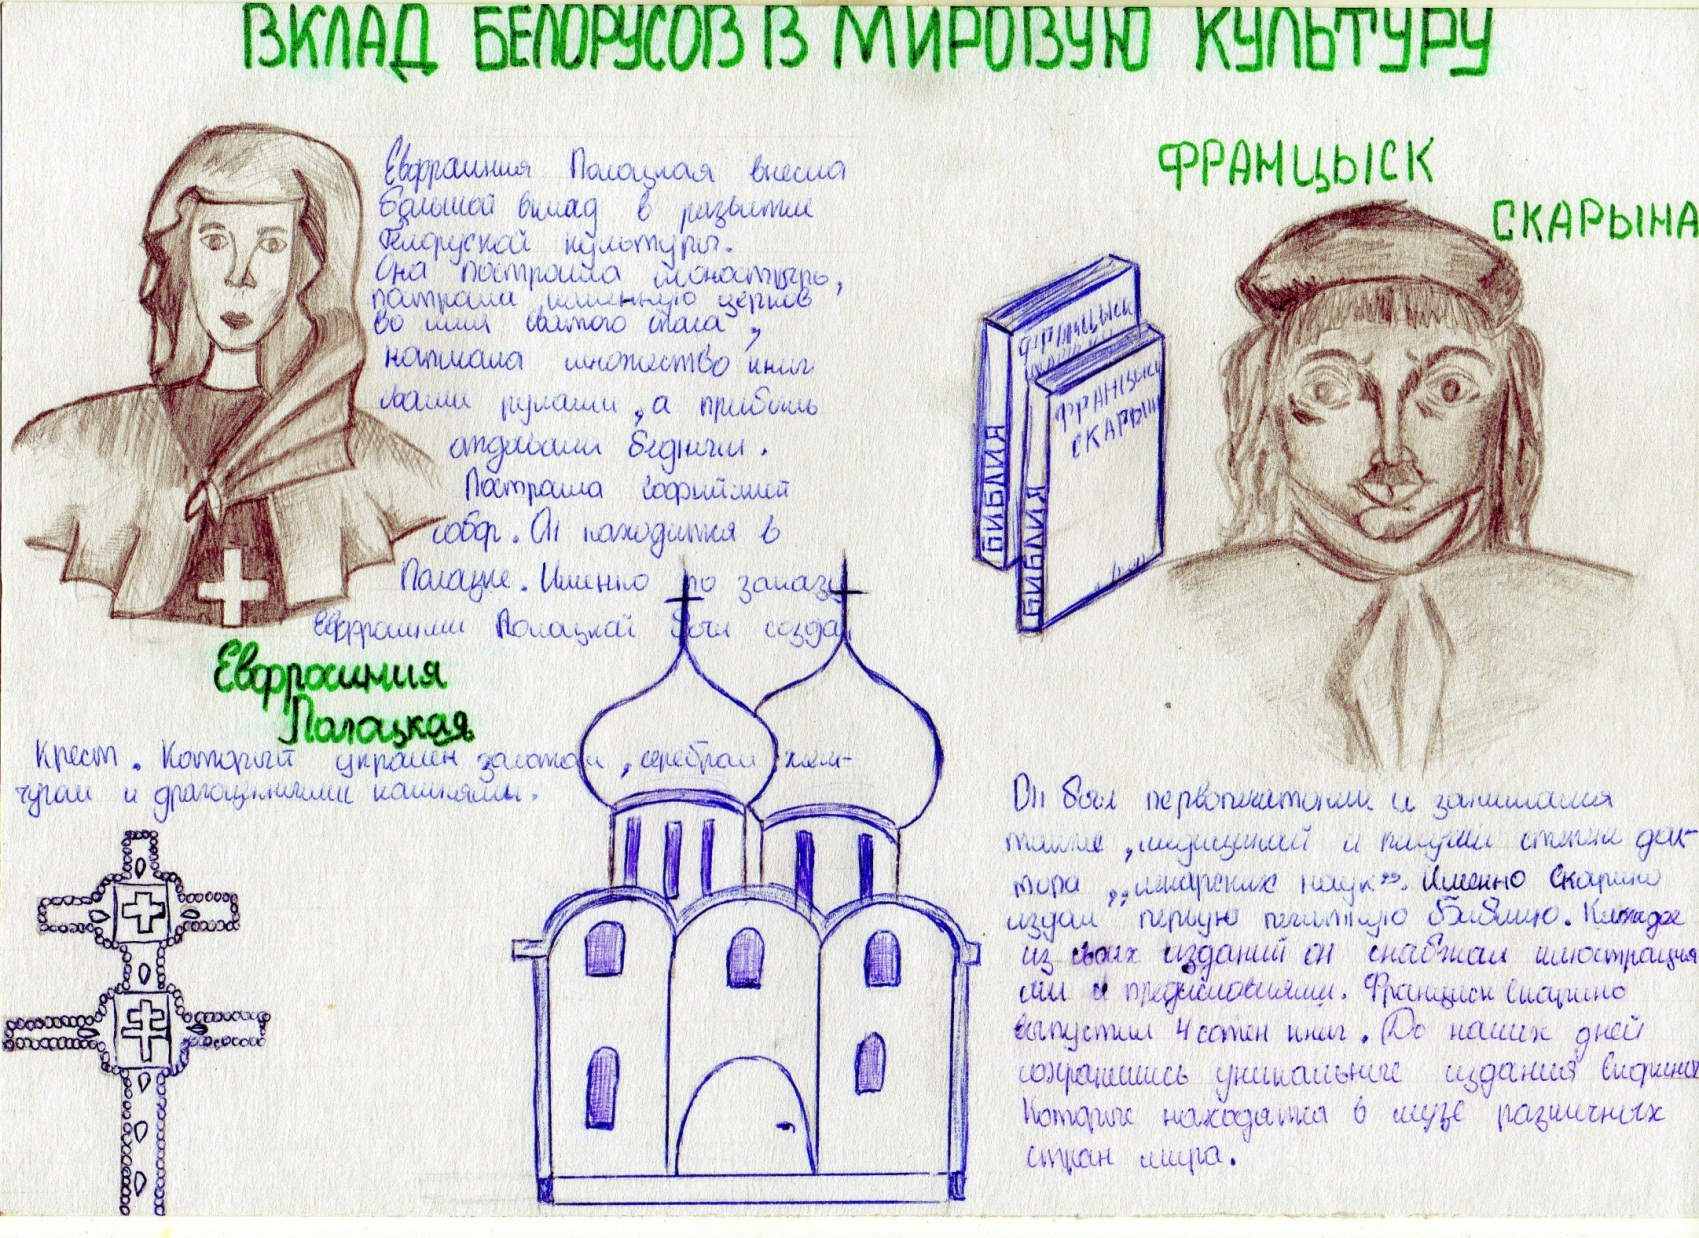 ВКЛАД БЕЛОРУСОВ В МИРОВУЮ КУЛЬТУРУ
Евфрасиния Полацкая внесла
большой вклад в развитие
белоруской культуры.
Она построила монастырь,
построила церков
во имя святого спаса,
написала множество книг
своими руками, а прибыль
отдавали бедным.
Построила Софийский
собор. Он находится в
Полацке. Именно по заказу
Евфрасинии Полацкай был создан
Евфрасиния
Полацкая
Крест. Который украшен золотом, серебром жем-
чугом и драгоценными камнями.
ФРАНЦЫСК
СКАРЫНА
ФРАНЦЫСК
БИБЛИЯ
ФРАНЦЫСК
СКАРЫН
БИБЛИЯ
Он был первопечатником и занимался
также, медициной и получил степень док-
тора „лекарских наук”. Именно Скарыно
издал первую печатную Библию. Каждое
из своих изданий он снабжал илюстрация
ми и предисловиями. Францыск Скарыно
выпустил 4 сотен книг. До наших дней
сохранились уникальные издания Скорины
Которые находятся в музе различных
стран мира.